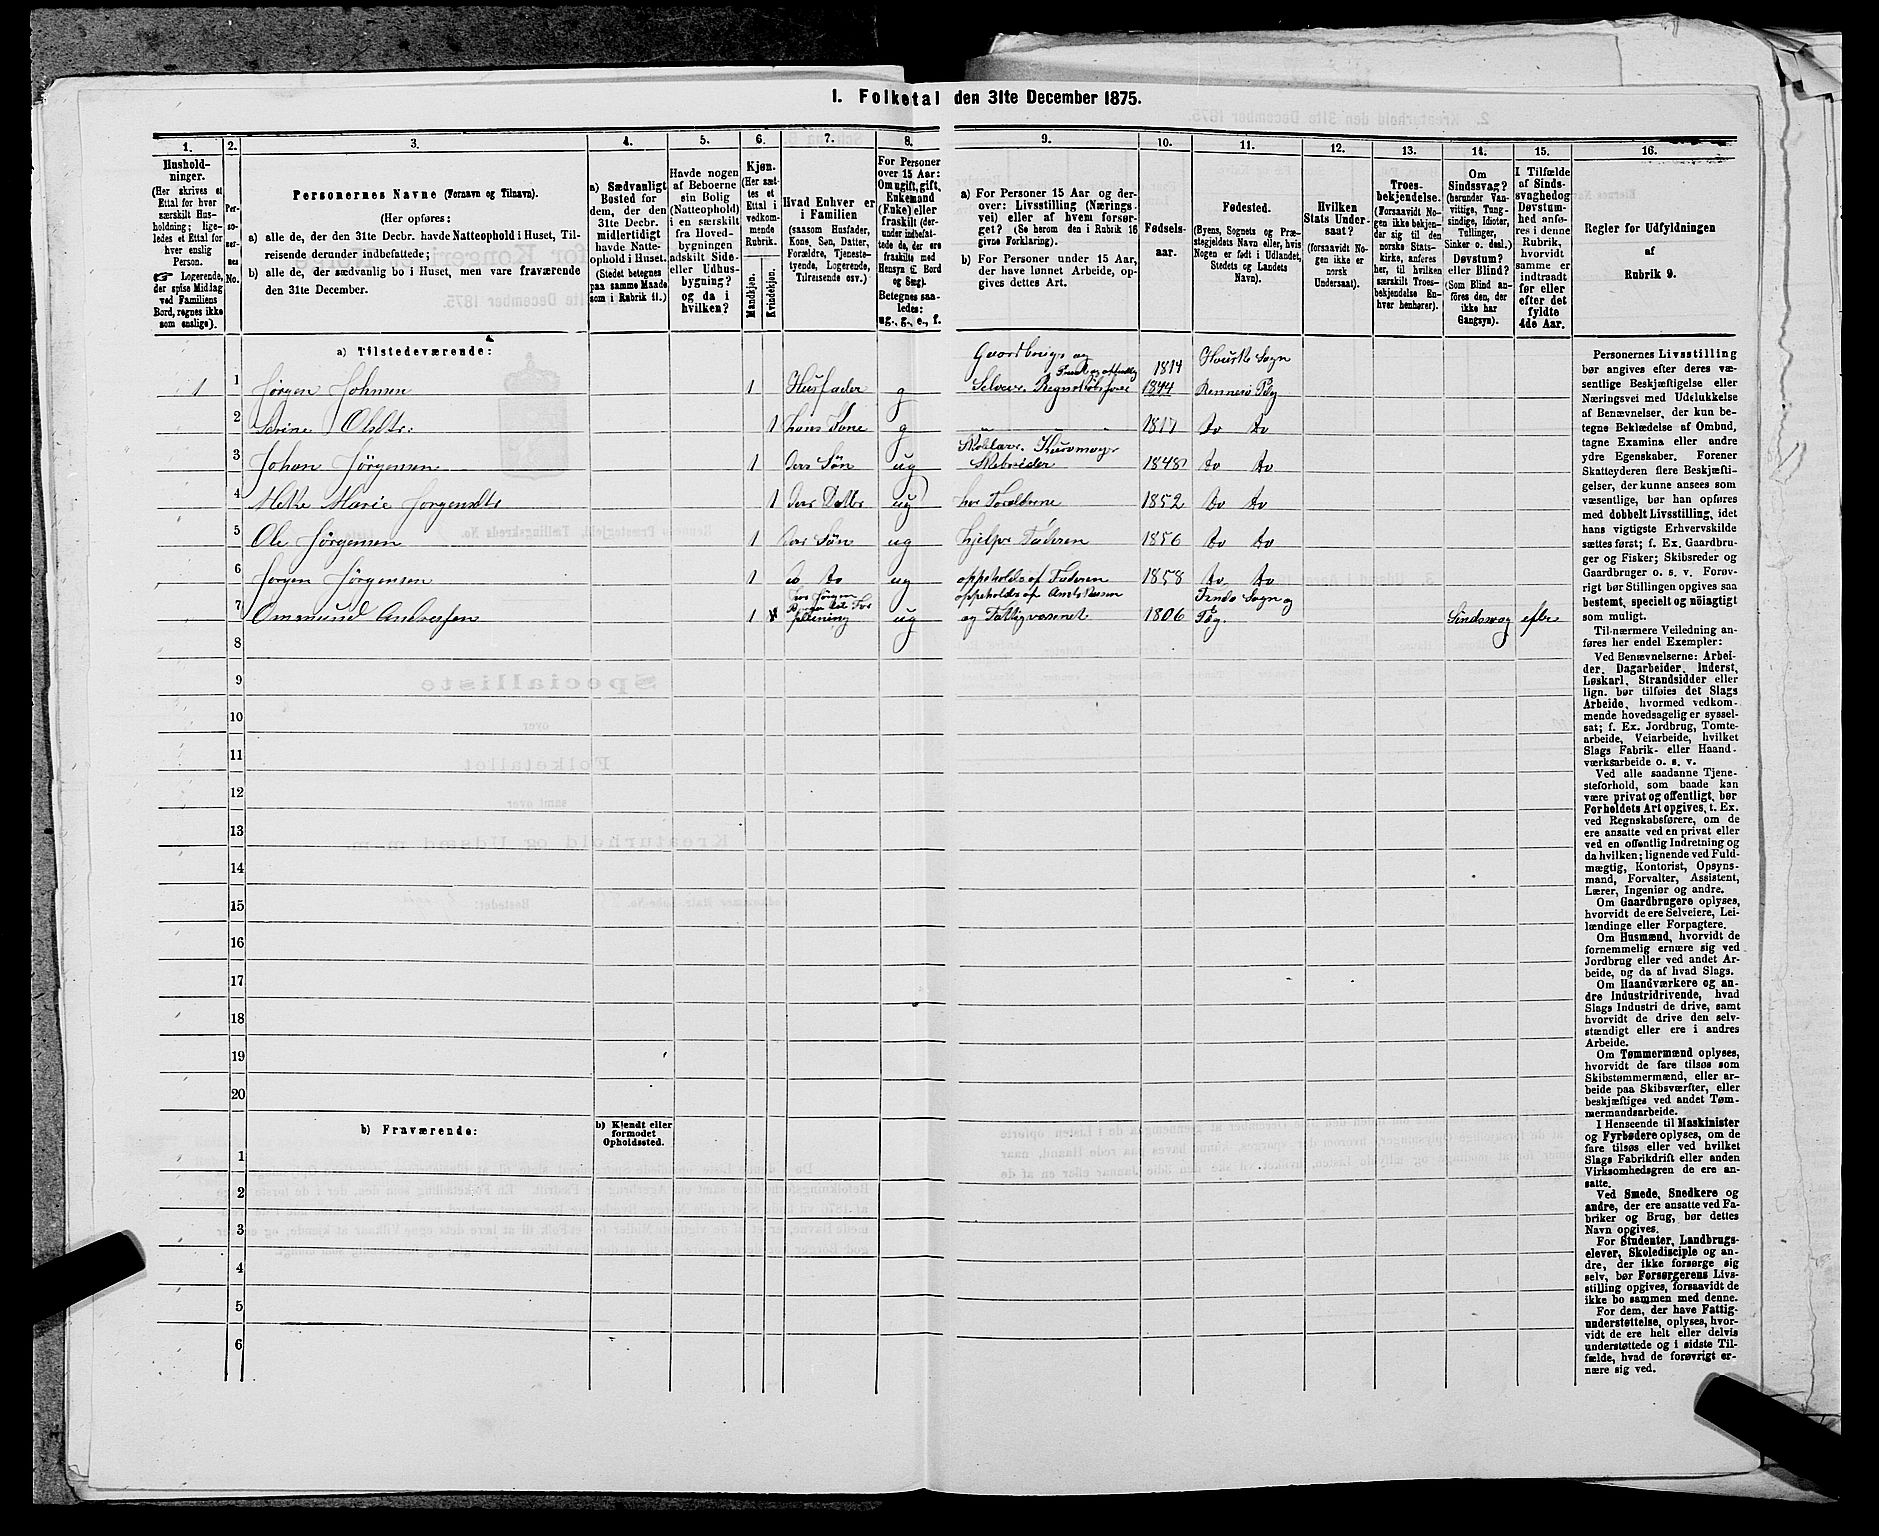 1. Folketal den 31te December 1875.
1.
Hushold-
ninger.
(Her skrives et
Ettal for hver
særskilt Hus-
holdning; lige-
ledes et Ettal for
hver enslig
Person.
☞ Logerende,
der spise Middag
ved Familiens
Bord, regnes ikke
som enslige).
2.
Per-
so-
ner-
nes
No.
3.
Personernes Navne (Fornavn og Tilnavn).
(Her opføres:
a) alle de, der den 31te Decbr. havde Natteophold i Huset, Til-
reisende derunder indbefattede;
b) alle de, der sædvanlig bo i Huset, men vare fraværende
den 31te December.
4.
a) Sædvanligt
Bosted for
dem, der den
31te Decbr.
midlertidigt
havde Natte-
ophold i Huset.
(Stedet betegnes
paa samme Maade
som i Rubrik 11.)
5.
Havde nogen
af Beboerne
sin Bolig
(Natteophold)
i en særskilt
fra Hoved-
bygningen
adskilt Side-
eller Udhus-
bygning?
og da i
hvilken?
6.
Kjøn.
(Her sæt-
tes et
Ettal i
vedkom-
mende
Rubrik.
Mandkjøn.
Kvindekjøn.
7.
Hvad Enhver er
i Familien
(saasom Husfader,
Kone, Søn, Datter,
Forældre, Tjeneste-
tyende, Logerende,
Tilreisende osv.)
8.
For Personer
over 15 Aar:
Om ugift, gift,
Enkemand
(Enke) eller
fraskilt (der-
under indbefat-
tede de, der ere
fraskilte med
Hensyn til Bord
og Seng).
Betegnes saa-
ledes:
ug., g., e., f.
9.
a) For Personer 15 Aar og der-
over: Livsstilling (Nærings-
vei) eller af hvem forsør-
get? (Se herom den i Rubrik 16
givne Forklaring).
b) For Personer under 15 Aar,
der have lønnet Arbeide, op-
gives dettes Art.
10.
Fødsels-
aar.
11.
Fødested.
(Byens, Sognets og Præ-
stegjeldets Navn eller, hvis
Nogen er født i Udlandet,
Stedets og Landets
Navn).
12.
Hvilken
Stats Under-
saat?
(forsaavidt No-
gen ikke er
norsk
Undersaat).
13.
Troes-
bekjendelse.
(Forsaavidt No-
gen ikke bekjen-
der sig til den
norske Stats-
kirke, anføres
her, til hvilken
særskilt Troes-
bekjendelse En-
hver henhører).
14.
Om
Sindssvag?
(herunder Van-
vittige, Tung-
sindige, Idioter,
Tullinger,
Sinker o. desl.)
Døvstum?
eller Blind?
(Som Blind an-
føres den, der
ikke har
Gangsyn).
15.
I Tilfælde
af Sinds-
svaghed og
Døvstum-
hed anfø-
res i denne
Rubrik,
hvorvidt
samme er
indtraadt
før eller
efter det
fyldte
4de Aar.
16.
Regler for Udfyldningen
af
Rubrik 9.
a) Tilstedeværende:
1 1 Jørgen Johnsen 1 Husfader g Gaardbrugs og Selveier. Regnskabsfører 1814 1844 Hauske Sogn Rennesø Pg
2 Serine Olsdtr: 1 hans Kone g 1817 do do
3 Johan Jørgensen 1 deres Søn ug Skibsreder 1848 do do
4 Mette Marie Jørgensdtr 1 deres Datter ug hos Forældrene 1852 do do
5 Ole Jørgensen 1 deres Søn ug hjelper Faderen 1856 do do
6 Jørgen Jørgensen 1 do do ug oppeholdes af Faderen 1858 do do
7 Ommund Andersen 1 ug oppeholdes af Amtskassen og Fattigvæsenet 1806 Findø Sogn og Pg. Sindssvag efter
8
9
10
11
12
13
14
15
16
17
18
19
20
b) Fraværende:
b) Kjendt eller
formodet
Opholdssted.
1
2
3
4
5
6
Personernes Livsstilling
bør angives efter deres væ-
sentlige Beskjæftigelse eller
Næringsvei med Udelukkelse
af Benævnelser, der kun be-
tegne Beklædelse af Ombud,
tagne Examina eller andre
ydre Egenskaber. Forener
Skatteyderen flere Beskjæfti-
gelser, der kunne ansees som
væsentlige, bør han opføres
med dobbelt Livsstilling, idet
hans vigtigste Erhvervskilde
sættes først; f. Ex. Gaardbru-
ger og Fisker; Skibsreder og
Gaardbruger o. s. v. Forøv-
rigt bør Stillingen opgives saa
bestemt, specielt og nöiagtigt
som muligt.
Til nærmere Veiledning an-
føres her endel Exempler:
Ved Benævnelserne: Arbei-
der, Dagarbeider, Inderst,
Løskarl, Strandsidder eller
lign. bør tilføies det Slags
Arbeide, hvormed vedkom-
mende hovedsagelig er syssel-
sat; f. Ex. Jordbrug, Tomte-
arbeide, Veiarbeide, hvilket
Slags Fabrik- eller Haand-
værksarbeide o. s. v.
Ved alle saadanne Tjene-
steforhold, som baade kan
være privat og offentligt, bør
Forholdets Art opgives, t. Ex.
ved Regnskabsførere, om de
ere ansatte ved en privat eller
ved en offentlig Indretning og
da hvilken; lignende ved Fuld-
mægtig, Kontorist, Opsyns-
mand, Forvalter, Assistent,
Lærer, Ingeniør og andre.
Om Gaardbrugere oplyses,
hvorvidt de ere Selveiere, Lei-
lændinge eller Forpagtere.
Om Husmænd, hvorvidt de
fornemmelig ernære sig ved
Jordbrug eller ved andet Ar-
beide, og da af hvad Slags.
Om Haandværkere og an-
dre Industridrivende, hvad
Slags Industri de drive, samt
hvorvidt de drive den selv-
stændigt eller ere i andres
Arbeide.
Om Tømmermænd oplyses,
hvorvidt de fare tilsøs som
Skibstømmermænd, eller ar-
beide paa Skibsværfter, eller
beskjæftiges ved andet Tøm-
mermandsarbeide.
I Henseende til Maskinister
og Fyrbødere oplyses, om de
fare tilsøs eller ved hvilket
Slags Fabrikdrift eller anden
Virksomhedsgren de ere an-
satte.
Ved Smede, Snedkere og
andre, der ere ansatte ved Fa-
briker og Brug, bør dettes
Navn opgives.
For Studenter, Landbrugs-
elever, Skoledisciple og an-
dre, der ikke forsørge sig
selv, bør Forsørgerens Livs-
stilling opgives, forsaavidt de
ikke bo sammen med denne.
For dem, der have Fattig-
understøttelse, oplyses, hvor-
vidt de ere helt eller delvis
understøttede og i sidste Til-
fælde, hvad de forøvrigt er-
nære sig ved.